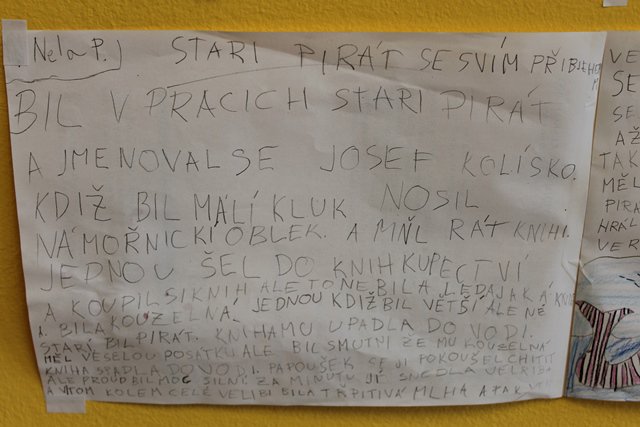 Nela P.) STARI PIRÁT SE SVÍM PŘIBJEHEM
BIL V PRACICH STARI PIRÁT
A JMENOVAL SE JOSEF KOLÍSKO.
KDIŽ BIL MÁLÍ KLUK NOSIL
NÁMOŘNICKÍ OBLEK. A MŇL RÁT KNIHI.
JEDNOU ŠEL DO KNIHKUPECTVÍ
A KOUPIL SI KNIH ALE TO NE BILA LEDAJAKÁ
A BILA KOUZELNÁ. JEDNOU KDIŽ BIL VĚTŠÍ ALE NE
STARÝ BIL PIRÁT. KNIHA MU UPADLA DO VODI.
MĚL VESELOU POSÁTKU ALE BIL SMUTNÍ ŽE MU KOUZELNÁ
KNIHA SPADLA DO VODI. PAPOUŠEK SE JI POKOUŠEL CHITIT
ALE PROUD BIL MOC SILNÍ. ZA MINUTU JI SNEDLA VELRIBA
A VTOM KOLEM CELÉ VELIBI BILA TŘPITIVÁ MLHA A PAK
VE
SE
SE
AŽ
TAK
MĚL
PIRA
HRÁL
VE R